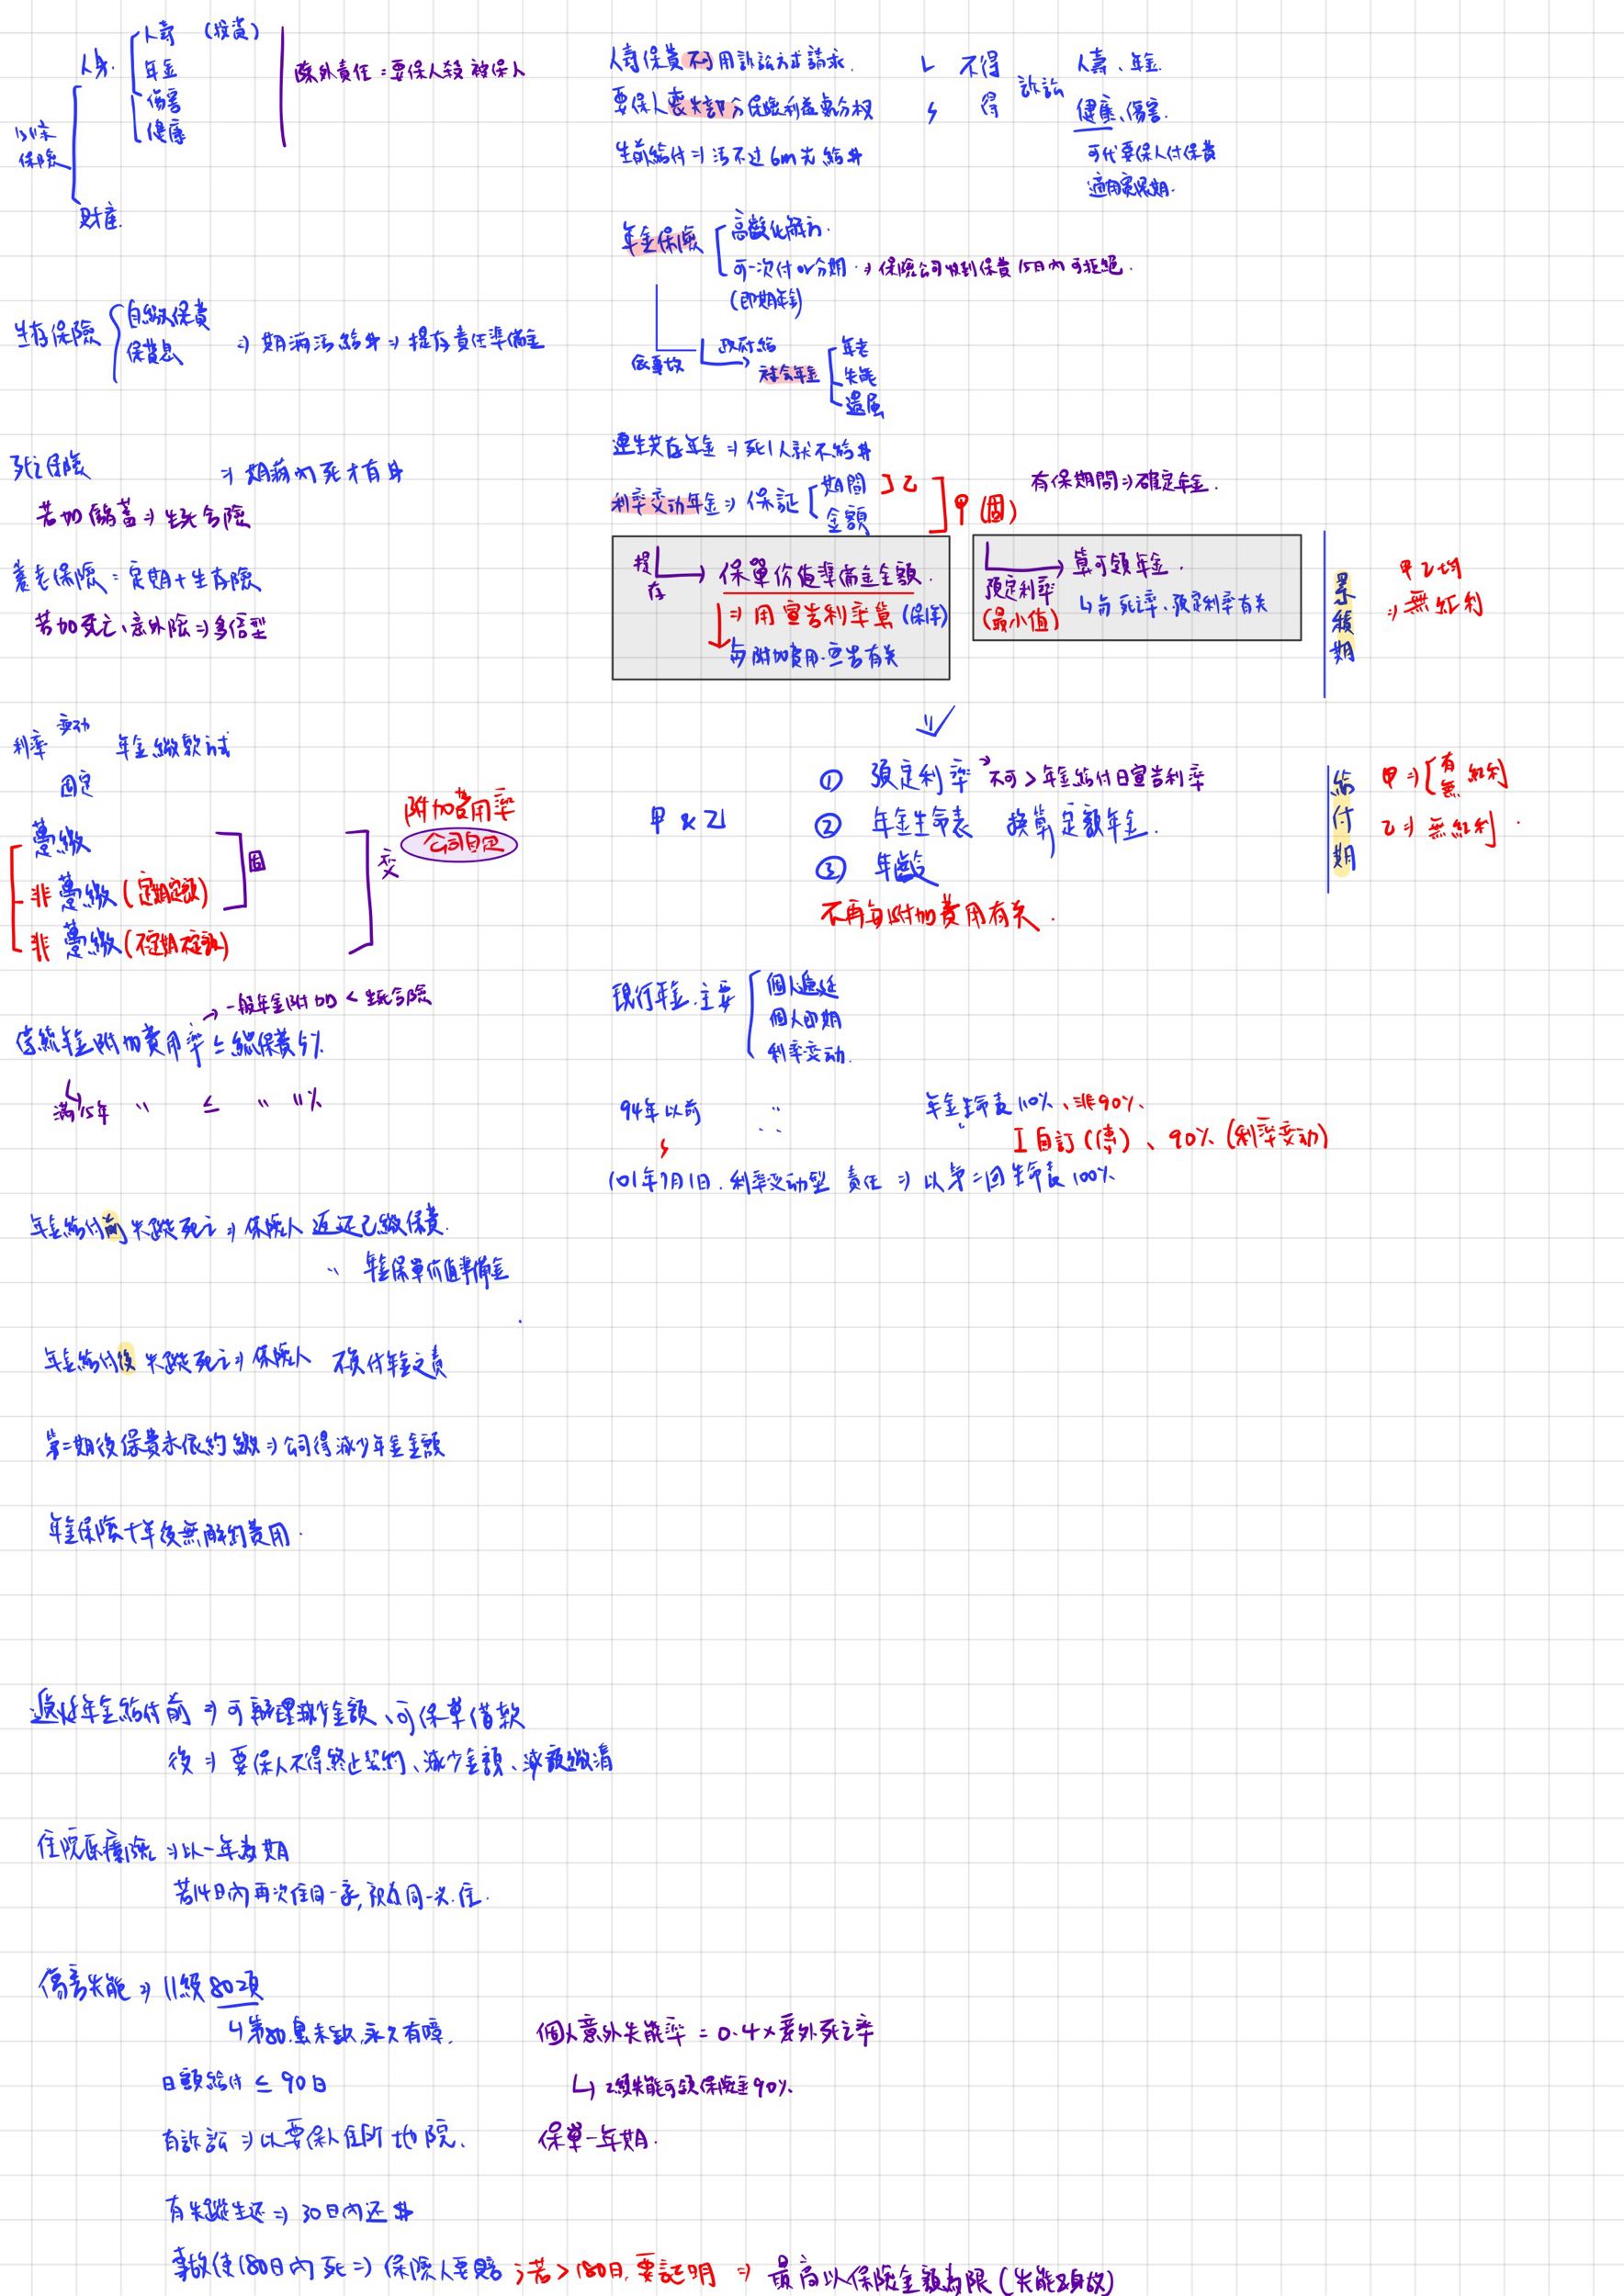 13條
保險
人身.
人壽 (投資)
年金
傷害
健康
財產.
除外責任:要保人殺被保人
生存保險
自繳保費
保費息
⇒ 期滿活給$ ⇒ 提存責任準備金
死亡保險 ⇒ 期滿內死才有$
若加儲蓄 ⇒ 生死合險
養老保險 = 定期+生存險
若加死亡、意外險 ⇒ 多倍型
利率 變動 年金繳款方式
固定
躉繳
非躉繳 (定期定額)
非躉繳 (不定期不定額)
固
變
附加費用率
公司自定
→ 一般年金附加 < 生死合險
傳統年金附加費用率 ≤ 總保費5%
滿15年 〃 ≤ 〃 11%
年金給付前失蹤死亡 ⇒ 保險人返还已繳保費.
〃 年金保單价值準備金
年金給付後失蹤死亡 ⇒ 保險人 不負付年金之責
第二期後保費未依約繳 ⇒ 公司得減少年金金額
年金保險十年後無解約費用.
遞延年金給付前 ⇒ 可辦理減少金額、可保單借款
後 ⇒ 要保人不得終止契約、減少金額、減額繳清
住院医療險 ⇒ 以一年為期
若14日內再次住同一家,視為同一次住.
傷害失能 ⇒ 11級80項
↳第80.鼻未缺,永久有障.
日額給付 ≤ 90日
有訴訟 ⇒ 以要保人住所地院.
有失蹤生还 ⇒ 30日內还$
事故使180日內死 ⇒ 保險人要賠;若>180日,要証明 ⇒ 最高以保險金額為限(失能及身故)
個人意外失能率 = 0.4×意外死亡率
↳ 2級失能可領保險金90%.
保單一年期.
人壽保費不可用訴訟方式請求.
要保人喪失部分保險利益無分权
生前給付 ⇒ 活不过6m先給$
不得
得
訴訟
人壽、年金.
健康、傷害.
可代要保人付保費
適用寬限期.
年金保險
高齡化解方.
可一次付or分期. ⇒ 保險公司收到保費15日內可拒絕.
(即期年金)
依事故
政府給
社会年金
年老
失能
遺屬
連生共存年金 ⇒ 死1人就不給$
利率变动年金 ⇒ 保証
期間
金額
乙
甲(固)
有保期間 ⇒ 確定年金.
提存 → 保單价值準備金金額.
⇒ 用宣告利率算(保單)
与附加費用.宣告有关
→ 算可領年金.
預定利率
(最小值)
↳与死亡率、預定利率有关
累積期
甲乙均
⇒ 無紅利
甲&乙
① 預定利率 → 不可>年金給付日宣告利率
② 年金生命表 換算定額年金.
③ 年齡
不再与附加費用有关.
給付期
甲 ⇒ 有 無 紅利
乙 ⇒ 無紅利.
現行年金.主要
個人遞延
個人即期
利率变动.
94年以前 〃 年金生命表110%、非90%.
自訂(傳)、90%(利率变动)
101年7月1日.利率变动型 責任 ⇒ 以第二回生命表100%